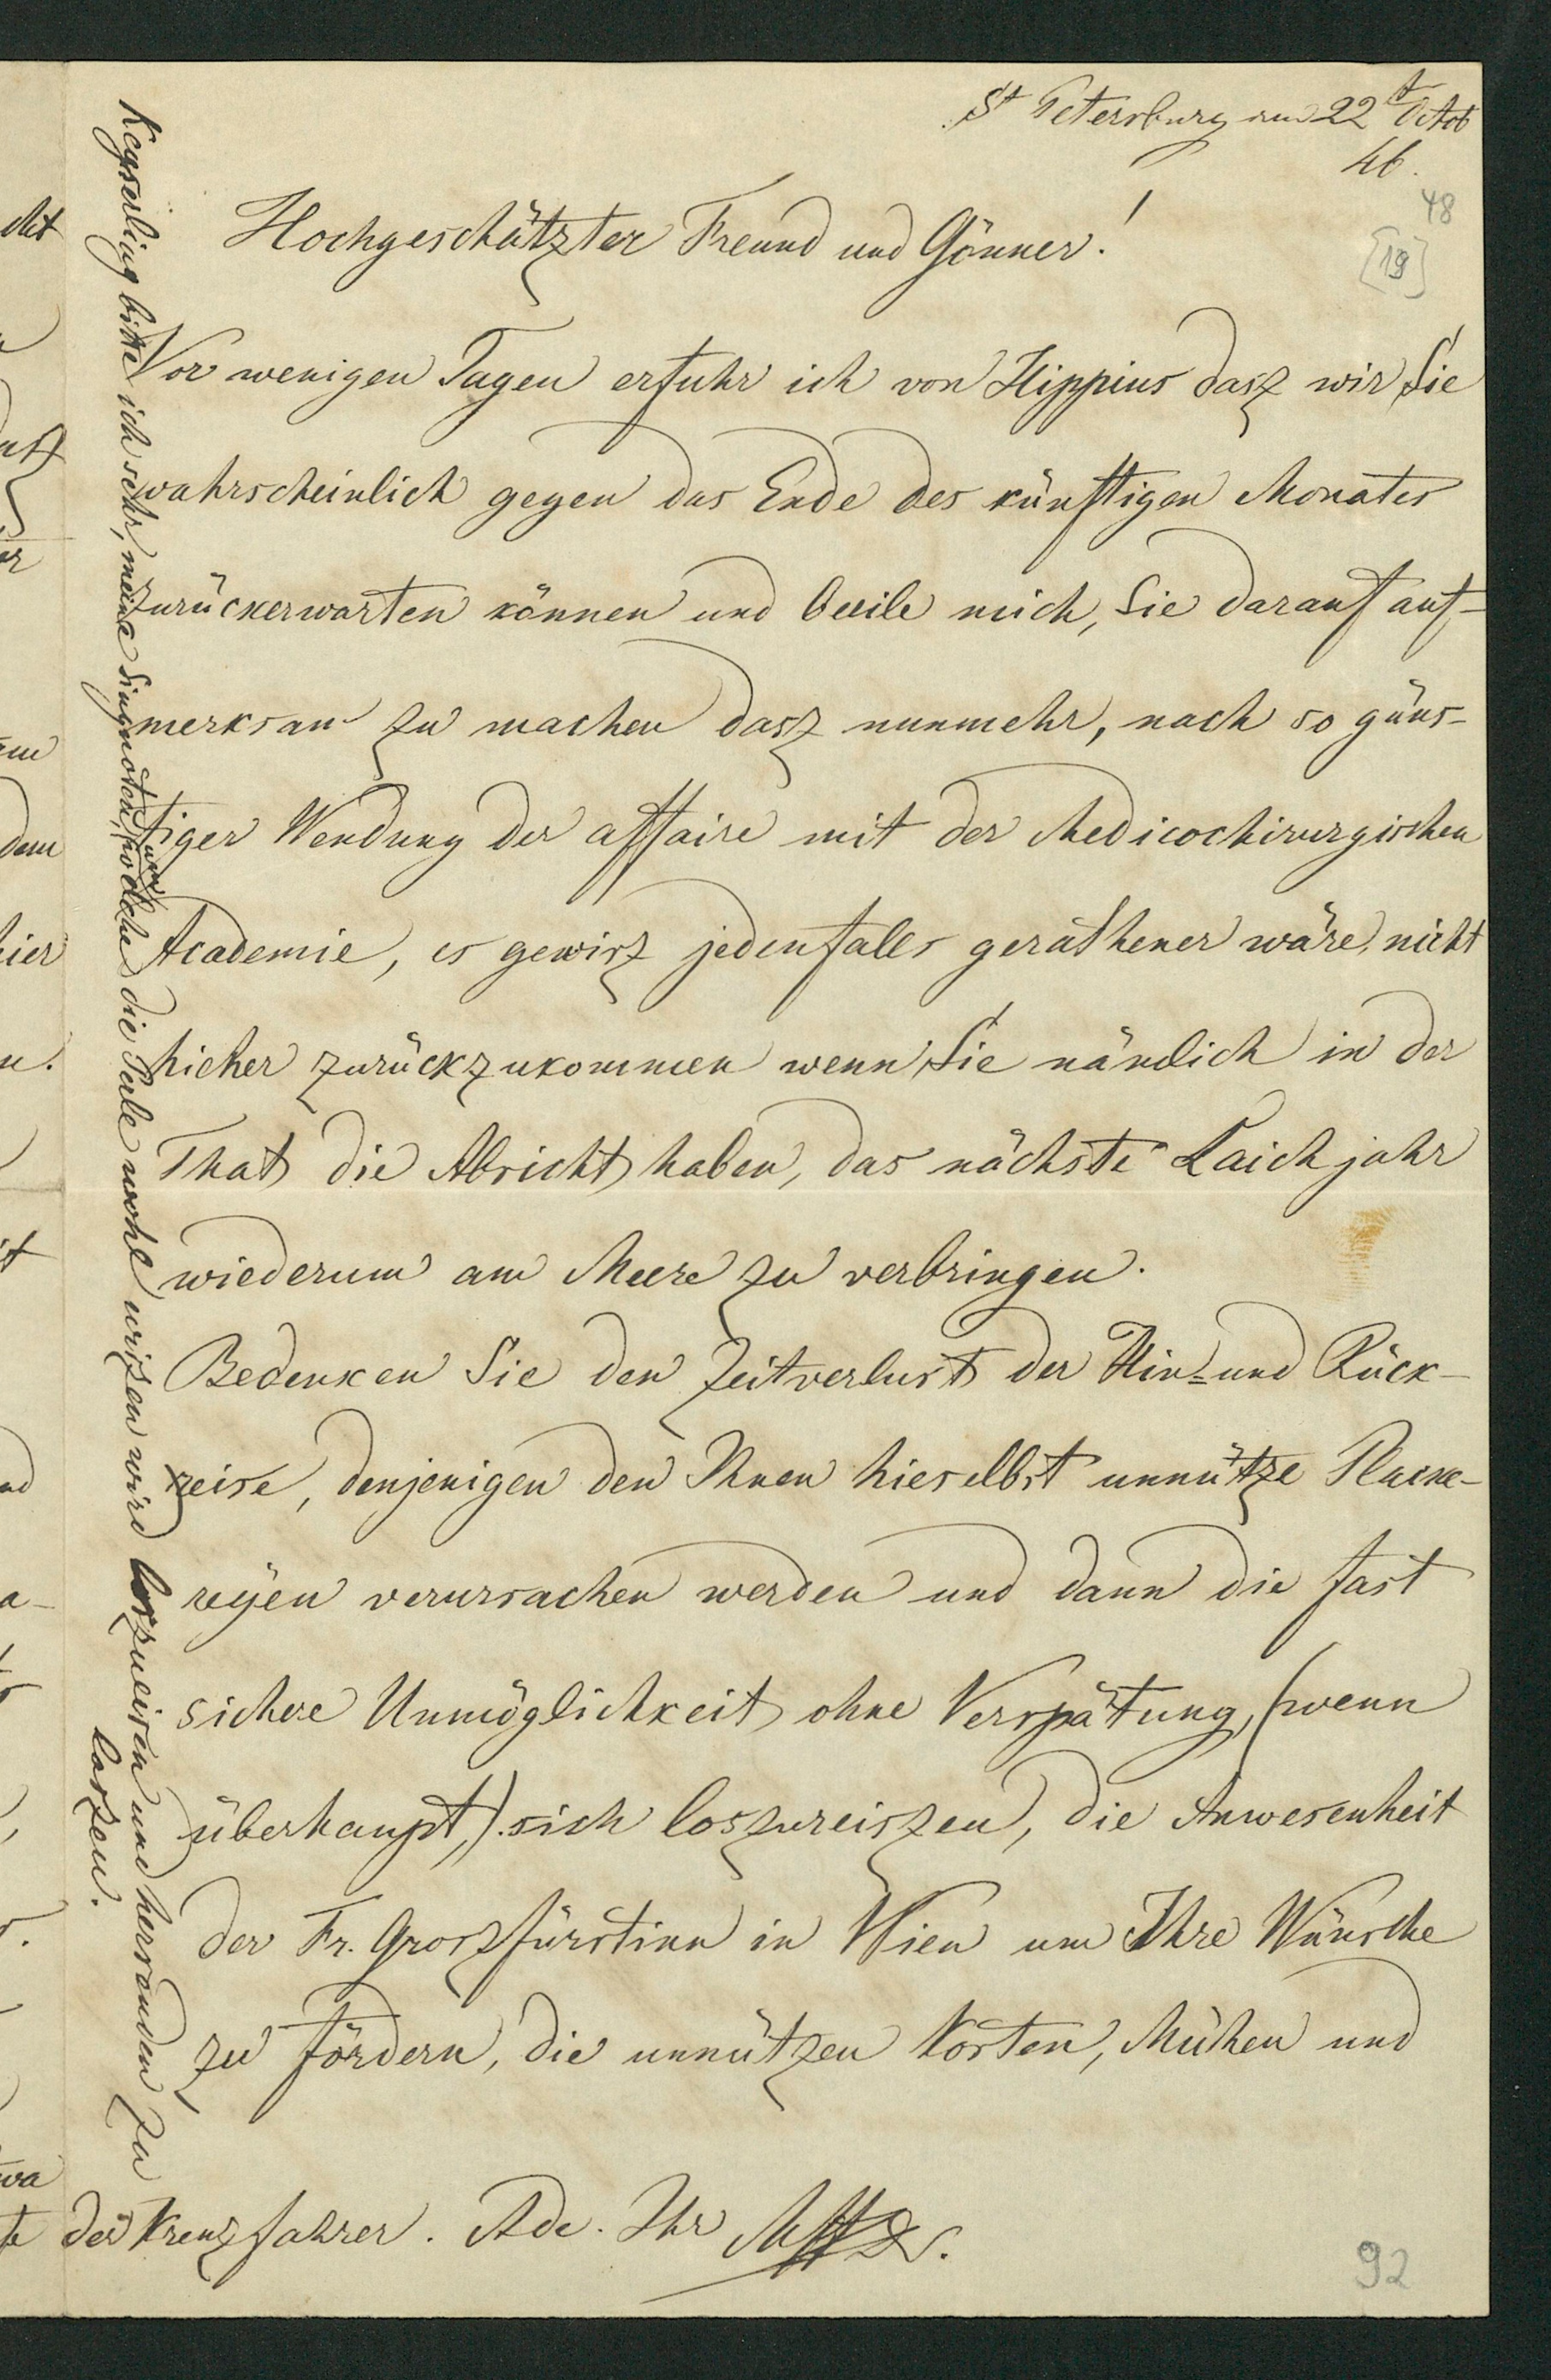 St Petersburg am 22t Octob
46.
48
[19]
Hochgeschätzter Freund und Gönner!
Vor wenigen Tagen erfuhr ich von Hippius dasz wir Sie
wahrscheinlich gegen das Ende des künftigen Monates
zurückerwarten können und beeile mich, Sie darauf auf-
merksam zu machen dasz nunmehr, nach so güns-
tiger Wendung der affaire mit der Medicochirurgischen
Academie, es gewisz jedenfalls geräthener wäre, nicht
hieher zurückzukommen wenn Sie nämlich in der
That die Absicht haben, das nächste Laichjahr
wiederum am Meere zu verbringen.
Bedenken Sie den Zeitverlust der Hin- und Rück-
reise, denjenigen den Ihnen hieselbst unnütze Placke-
reyen verursachen werden und dann die fast
sichere Unmöglichkeit ohne Verspätung, (wenn
überhaupt,) sich loszureiszen, die Anwesenheit
der Fr. Groszfürstinn in Wien um Ihre Wünsche
zu fördern, die unnützen Kosten, Mühen und
Keyserling bitte ich sehr, meine Singnoten, um welche die Seele wohl wiszen wird loszueisen und hersenden zu
laszen.
der Kreuzfahrer. Ade. Ihr
92